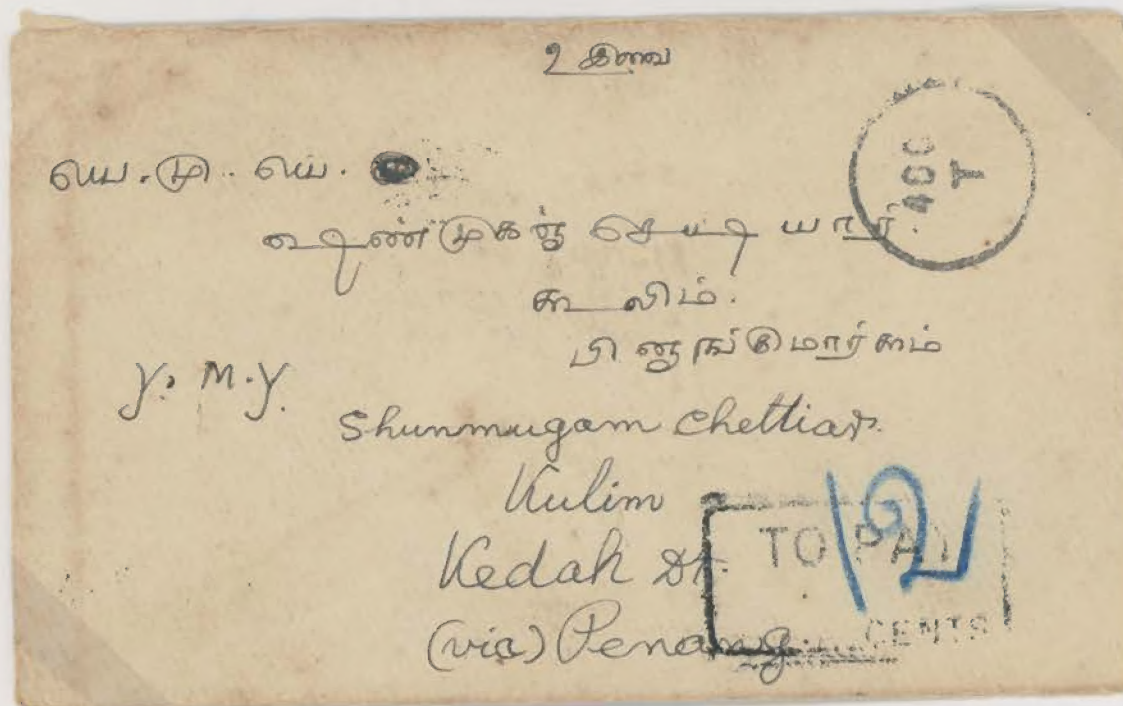 உ இணை
யெ. மு. யெ.
ஷண்முகஞ் செட்டியார்.
கூலிம்.
பினாங்மொர்கம்
400
T
Y. M. Y.
Shunmugam Chettiar.
Kulim
Kedah St.
(via) Penang
TO PAY
CENTS